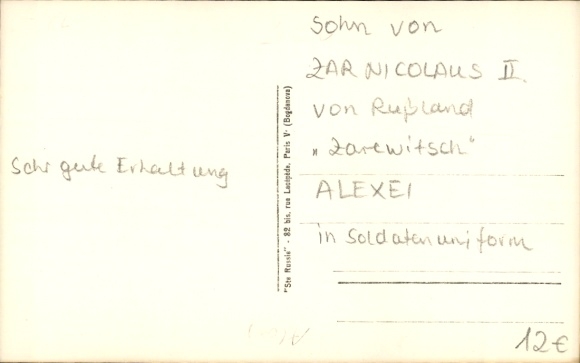 Sehr gute Erhaltung
"Ste Russie" - 82 bis, rue Lacépède, Paris V· (Bogdanova)
Sohn von
ZAR NICOLAUS II.
von Rußland
„Zarewitsch“
ALEXEI
in Soldatenuniform
12€